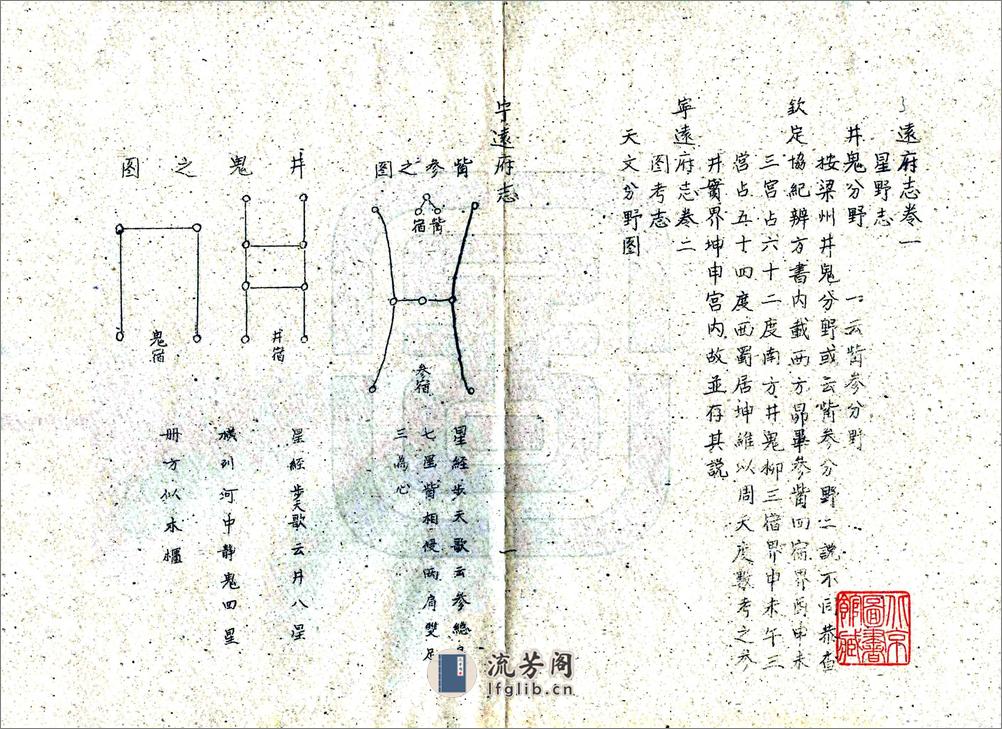 遠府志卷一
星野志
井鬼分野　一云觜参分野
按梁州井鬼分野或云觜参分野二説不同恭查
欽定協紀辨方書内載西方昴畢参觜四宿界酉申未
三宫占六十二度南方井鬼柳三宿界申未午三
宫占五十四度西蜀居坤維以周天度數考之参
井實界坤申宫内故並存其説
寧遠府志卷二
图考志
天文分野图
宁遠府志
一
觜参之图
觜宿
参宿
星経步天歌云参總
七星觜相侵两肩雙足
三為心
井鬼之图
井宿
鬼宿
星経步天歌云井八星
横列河中静鬼四星
册方似木櫃
北京圖書館藏
流芳阁
lfglib.cn